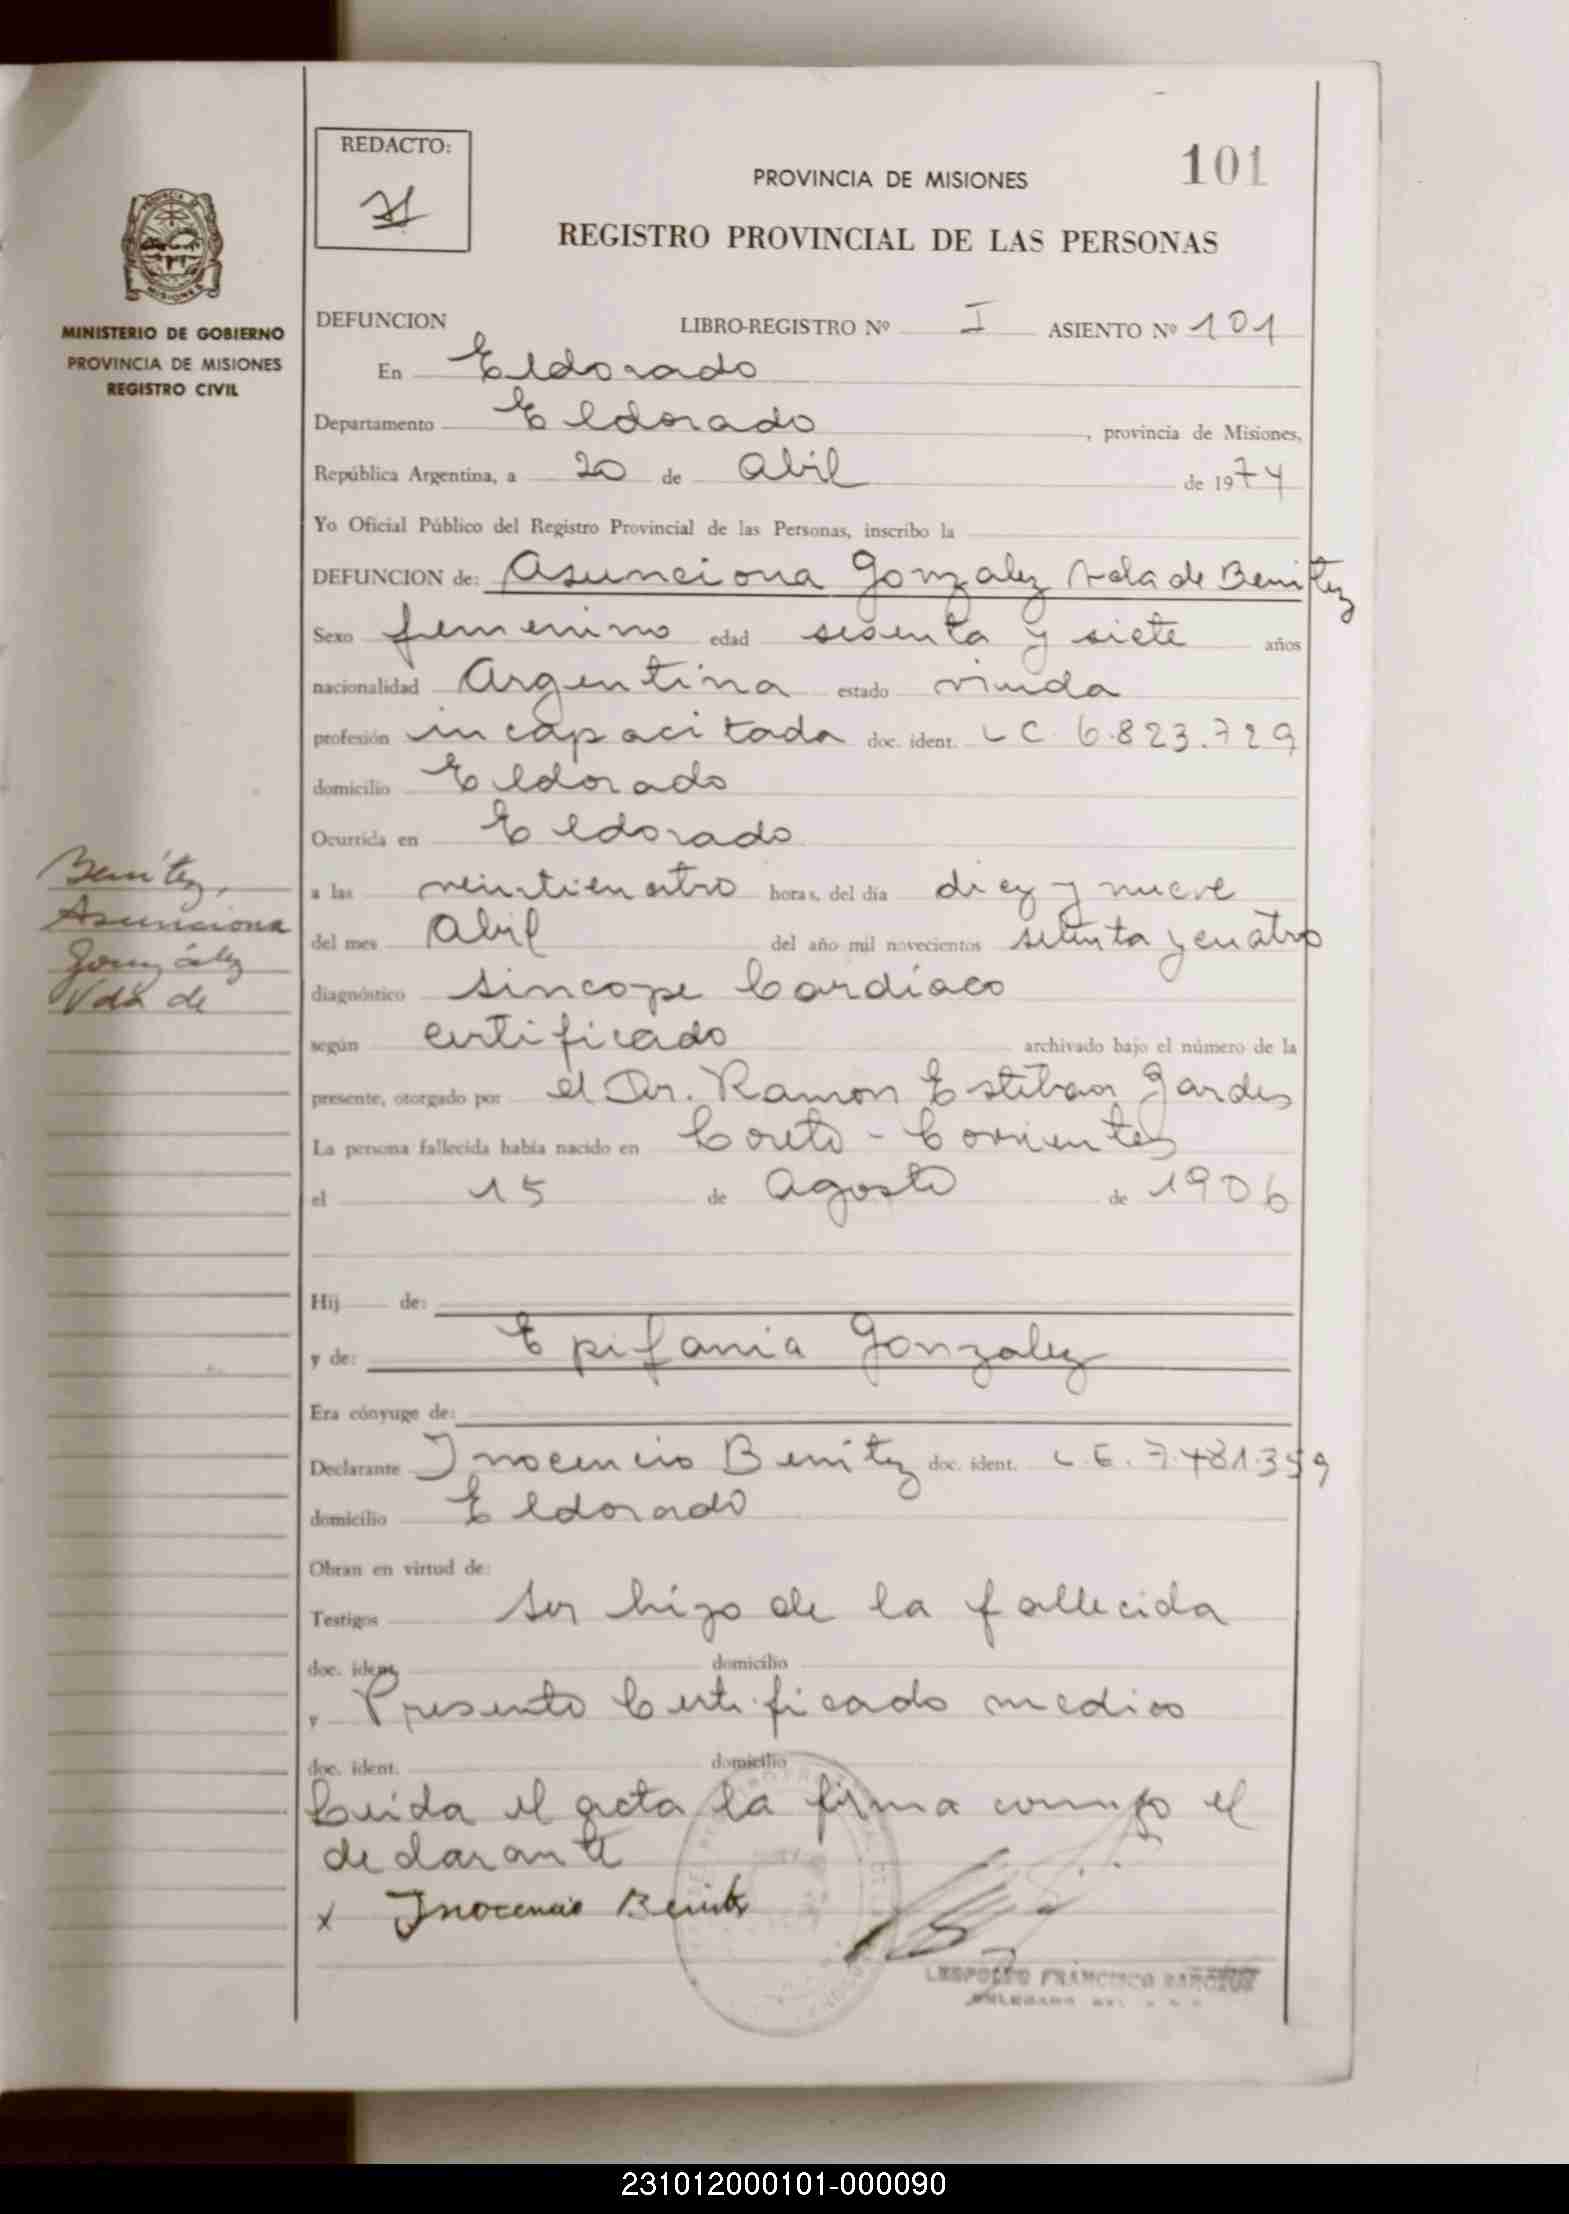 REDACTO:
PROVINCIA DE MISIONES
101
REGISTRO PROVINCIAL DE LAS PERSONAS
MINISTERIO DE GOBIERNO
PROVINCIA DE MISIONES
REGISTRO CIVIL
DEFUNCION LIBRO-REGISTRO Nº I ASIENTO Nº 101
En Eldorado
Departamento Eldorado, provincia de Misiones,
República Argentina, a 20 de Abil de 1974
Yo Oficial Público del Registro Provincial de las Personas, inscribo la
DEFUNCION de: Asunciona Gonzalez Vda de Benitez
Sexo femenino edad sesenta y siete años
nacionalidad Argentina estado viuda
profesión incapacitada doc. ident. LC. 6.823.729
domicilio Eldorado
Ocurrida en Eldorado
Benítez,
Asunciona
González
Vda de
a las veinticuatro horas, del día diez y nueve
del mes Abil del año mil novecientos setenta y cuatro
diagnóstico sincope Cardíaco
según certificado archivado bajo el número de la
presente, otorgado por el Dr. Ramon Esteban Gardes
La persona fallecida había nacido en Loreto - Corrientes
el 15 de Agosto de 1906
Hij de:
y de: Epifania Gonzalez
Era cónyuge de:
Declarante Inocencio Benítez doc. ident. L.E. 7.481.359
domicilio Eldorado
Obran en virtud de:
Testigos ser hijo de la fallecida
doc. ident. domicilio
y Presento Certificado medico
doc. ident. domicilio
Leida el acta la firma conmigo el
declarante
x Inocencio Benitez
LEOPOLDO FRANCISCO
231012000101-000090